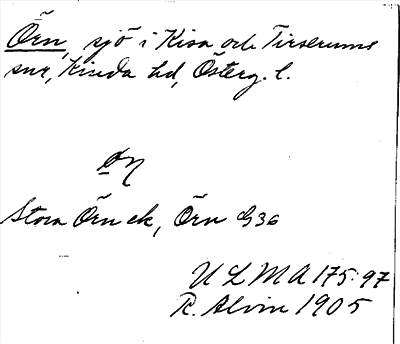 Örn, sjö i Kisa och Tirserums
snr, Kinda hd, Österg. l.
Stora Örn ek, Örn G36
ULMA 175:97
R. Alvin 1905